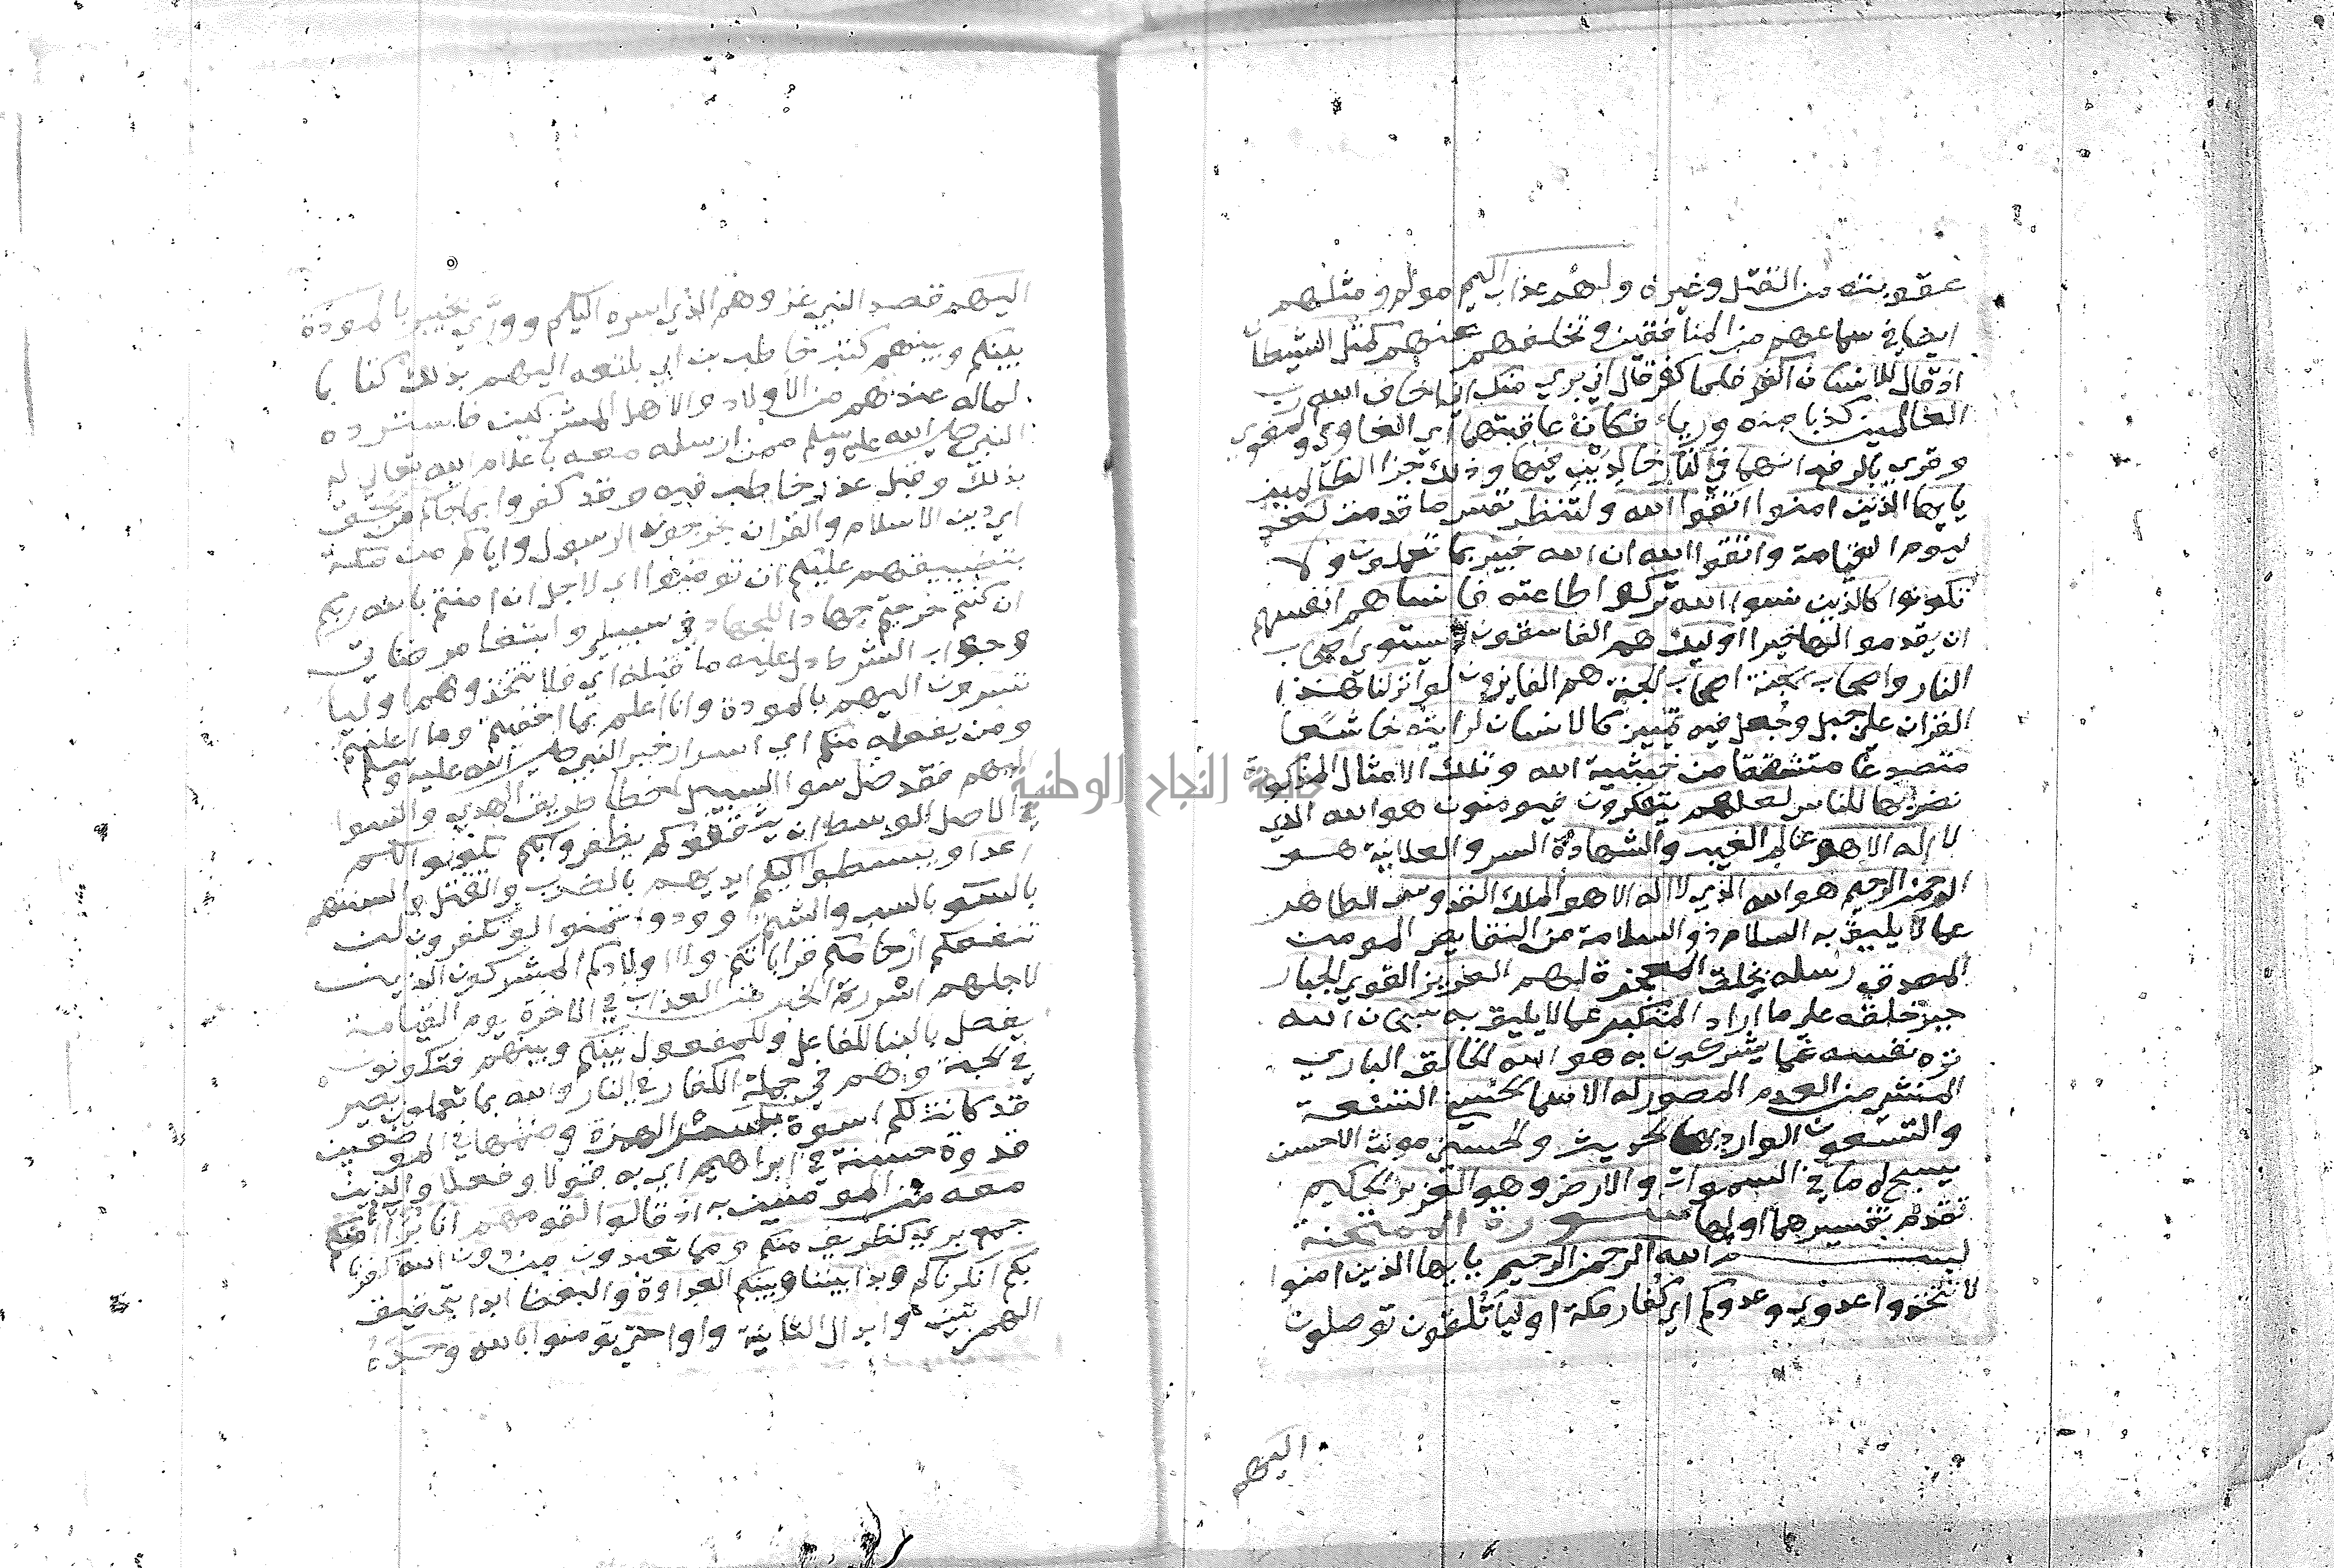 عقوبته من القتل وغيره ولهم عذاب اليم مولم ومثلهم
ايضا في سماعهم من المنافقين وتخلفهم عنهم كمثل الشيطان
اذ قال للانسان اكفر فلما كفر قال اني بري منك اني اخاف الله رب
العالمين كذبا منه ورياء فكان عاقبتهما اي الغاوي والمغوي
وقري بالرفع انهما في النار خالدين فيها وذلك جزا الظالمين
يايها الذين امنوا اتقوا الله ولتنظر نفس ما قدمت لغد
ليوم القيامة واتقوا الله ان الله خبير بما تعملون ولا
تكونوا كالذين نسوا الله تركوا طاعته فانساهم انفسهم
ان يقدموا لها خيرا اوليك هم الفاسقون لا يستوي اصحاب
النار واصحاب الجنة اصحاب الجنة هم الفايزون لو انزلنا هذا
القران على جبل وجعل فيه تمييز كالانسان لرايته خاشعا
متصدعا متشققا من خشية الله وتلك الامثال المذكورة
نضربها للناس لعلهم يتفكرون فيومنون هو الله الذي
لا اله الا هو عالم الغيب والشهادة السر والعلانية هو
الرحمن الرحيم هو الله الذي لا اله الا هو الملك القدوس الطاهر
عما لا يليق به السلام ذو السلامة من النقايص المومن
المصدق رسله بخلق المعجزة لهم العزيز القوي الجبار
جبر خلقه على ما اراد المتكبر عما لا يليق به سبحان الله
نزه نفسه عما يشركون به هو الله الخالق الباري
المنشي من العدم المصور له الاسما الحسني التسعة
والتسعون الوارد بها الحديث والحسني مونث الاحسن
يسبح له ما في السموات والارض وهو العزيز الحكيم
تقدم تفسيرهما اولها سورة الممتحنة
بسم الله الرحمن الرحيم يايها الذين امنوا
لا تتخذوا عدوي وعدوكم اي كفار مكة اوليا تلقون توصلون
اليهم
اليهم قصد النبي غزوهم الذي اسره اليكم ووري بخيبر بالمودة
بينكم وبينهم كتب حاطب بن ابي بلتعه اليهم بذلك كتابا
لماله عندهم من الاولاد والاهل المشركين فاسترده
النبي صلى الله عليه وسلم ممن ارسله معه باعلام الله تعالي له
بذلك وقبل عذر حاطب فيه وقد كفروا بما جاكم من الحق
اي دين الاسلام والقران يخرجون الرسول واياكم من مكة
بتضييقهم عليكم ان تومنوا اي لاجل ان امنتم بالله ربكم
ان كنتم خرجتم جهادا للجهاد في سبيلي وابتغا مرضاتي
وجواب الشرط دل عليه ما قبله اي فلا تتخذوهم اوليا
تسرون اليهم بالمودة وانا اعلم بما اخفيتم وما اعلنتم
ومن يفعله منكم اي اسرار خبر النبي صلى الله عليه وسلم
اليهم فقد ضل سوا السبيل اخطا طريق الهدي والسوا
في الاصل الوسط ان يثقفوكم يظفروا بكم يكونوا لكم
اعدا ويبسطوا اليكم ايديهم بالضرب والقتل والسنتهم
بالسو بالسب والشتم وودوا تمنوا لو تكفرون لن
تنفعكم ارحامكم قراباتكم ولا اولادكم المشركون الذين
لاجلهم اسررتم الخبر من العذاب في الاخرة يوم القيامة
يفصل بالبنا للفاعل وللمفعول بينكم وبينهم فتكونون
في الجنة وهم في جملة الكفار في النار والله بما تعملون بصير
قد كانت لكم اسوة بكسر الهمزة وضمها في الموضعين
قدوة حسنة في ابراهيم اي به قولا وفعلا والذين
معه من المومنين به اذ قالوا لقومهم انا براا منكم
جمع بري كظريف منكم ومما تعبدون من دون الله كفرنا
بكم انكرناكم وبدا بيننا وبينكم العداوة والبغضا ابدا بتحقيق
الهمزتين وابدال الثانية واوا حتي تومنوا بالله وحده
جامعة النجاح الوطنية